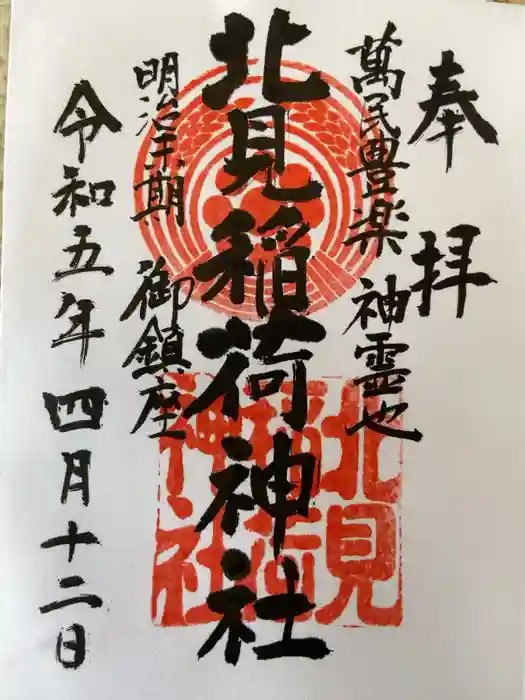 奉拝
萬民豊楽 神霊也
北見稲荷神社
明治中期 御鎮座
令和五年四月十二日
北見
稲荷
神社